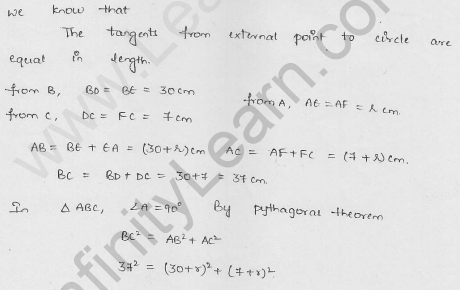 we know that
The tangents from external point to circle are
equal in length.
from B, BD = BE = 30cm
from A, AE = AF = r cm
from C, DC = FC = 7cm
AB = BE + EA = (30+r)cm AC = AF + FC = (7+r)cm.
BC = BD + DC = 30+7 = 37cm.
In △ABC, ∠A = 90° By pythagoras theorem
BC² = AB² + AC²
37² = (30+r)² + (7+r)²
www.
infinityLearn.com